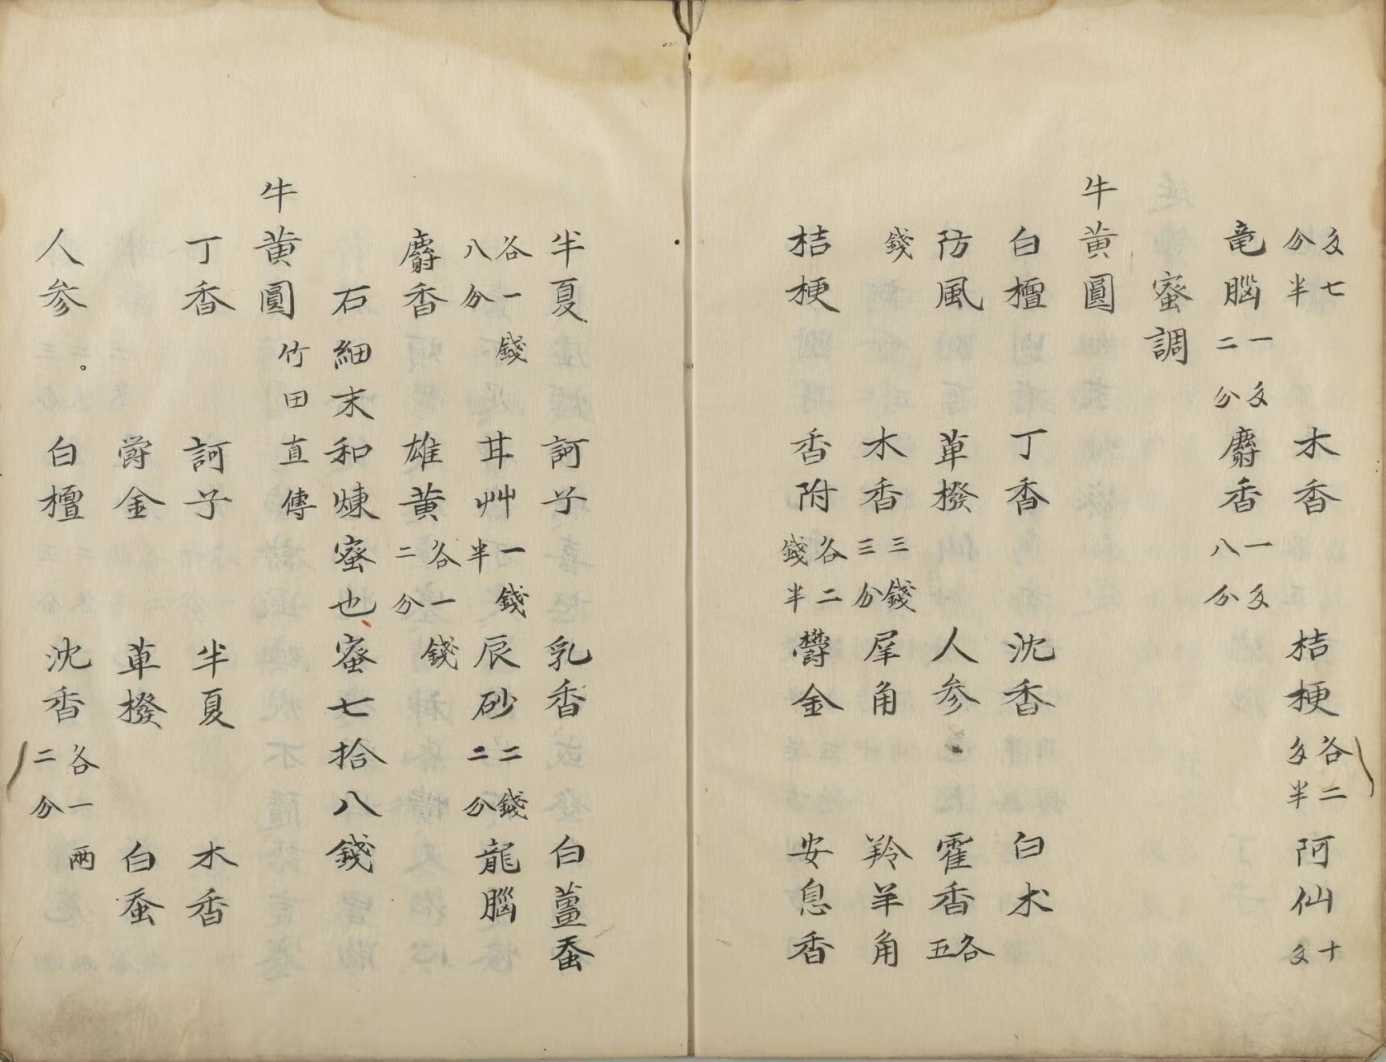 攵七分半　木香　桔梗各二攵半　阿仙十攵
竜腦一攵二分　麝香一攵八分
蜜調
牛黄圓
白檀　丁香　沈香　白朮
防風　萆撥　人参　霍香各五
錢　木香三錢三分　犀角　羚羊角
桔梗　香附各二錢半　欝金　安息香
半夏　訶子　乳香　白薑蚕
各一錢八分　甘艸一錢半　辰砂二錢二分　龍腦
麝香　雄黄各一錢二分
石細末和煉蜜也、蜜七拾八錢
牛黄圓竹田直傳
丁香　訶子　半夏　木香
欝金　萆撥　白蚕
人参。　白檀　沈香各一兩二分